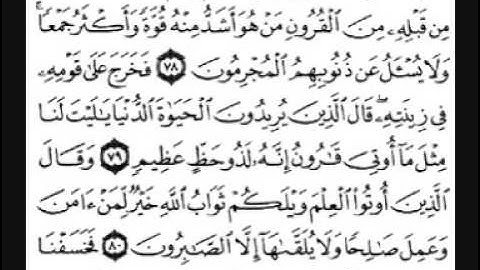 مِن قَبْلِهِۦ مِنَ ٱلْقُرُونِ مَنْ هُوَ أَشَدُّ مِنْهُ قُوَّةً وَأَكْثَرُ جَمْعًا ۚ
وَلَا يُسْـَٔلُ عَن ذُنُوبِهِمُ ٱلْمُجْرِمُونَ ٧٨ فَخَرَجَ عَلَىٰ قَوْمِهِۦ
فِى زِينَتِهِۦ ۖ قَالَ ٱلَّذِينَ يُرِيدُونَ ٱلْحَيَوٰةَ ٱلدُّنْيَا يَـٰلَيْتَ لَنَا
مِثْلَ مَآ أُوتِىَ قَـٰرُونُ إِنَّهُۥ لَذُو حَظٍّ عَظِيمٍ ٧٩ وَقَالَ
ٱلَّذِينَ أُوتُوا۟ ٱلْعِلْمَ وَيْلَكُمْ ثَوَابُ ٱللَّهِ خَيْرٌ لِّمَنْ ءَامَنَ
وَعَمِلَ صَـٰلِحًا وَلَا يُلَقَّىٰهَآ إِلَّا ٱلصَّـٰبِرُونَ ٨٠ فَخَسَفْنَا